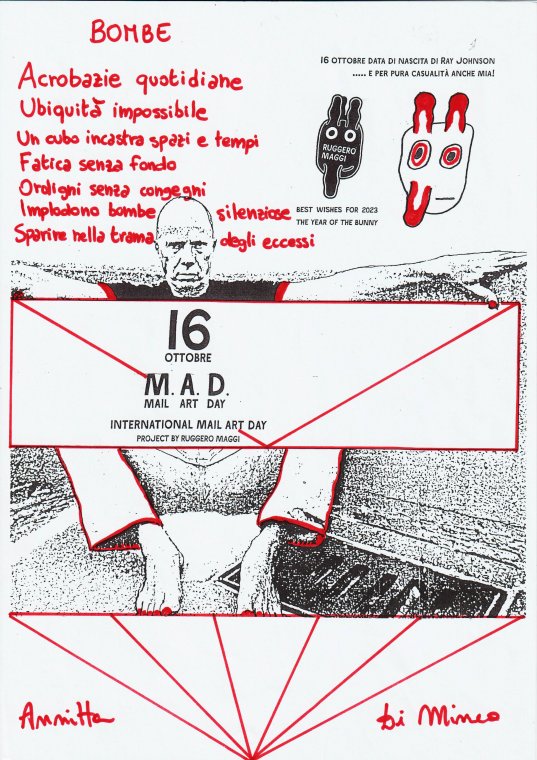 BOMBE
16 OTTOBRE DATA DI NASCITA DI RAY JOHNSON
..... E PER PURA CASUALITÀ ANCHE MIA!
Acrobazie quotidiane
Ubiquità impossibile
Un cubo incastra spazi e tempi
Fatica senza fondo
Ordigni senza congegni
Implodono bombe silenziose
Sparire nella trama degli eccessi
RUGGERO
MAGGI
BEST WISHES FOR 2023
THE YEAR OF THE BUNNY
16
OTTOBRE
M. A. D.
MAIL ART DAY
INTERNATIONAL MAIL ART DAY
PROJECT BY RUGGERO MAGGI
Annitta Di Mineo